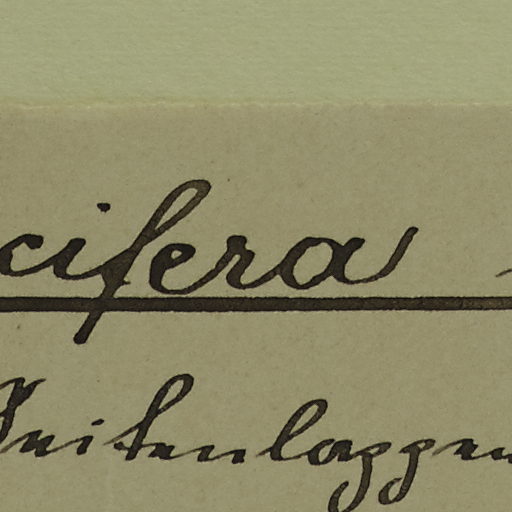 cifera
Seitenlappen